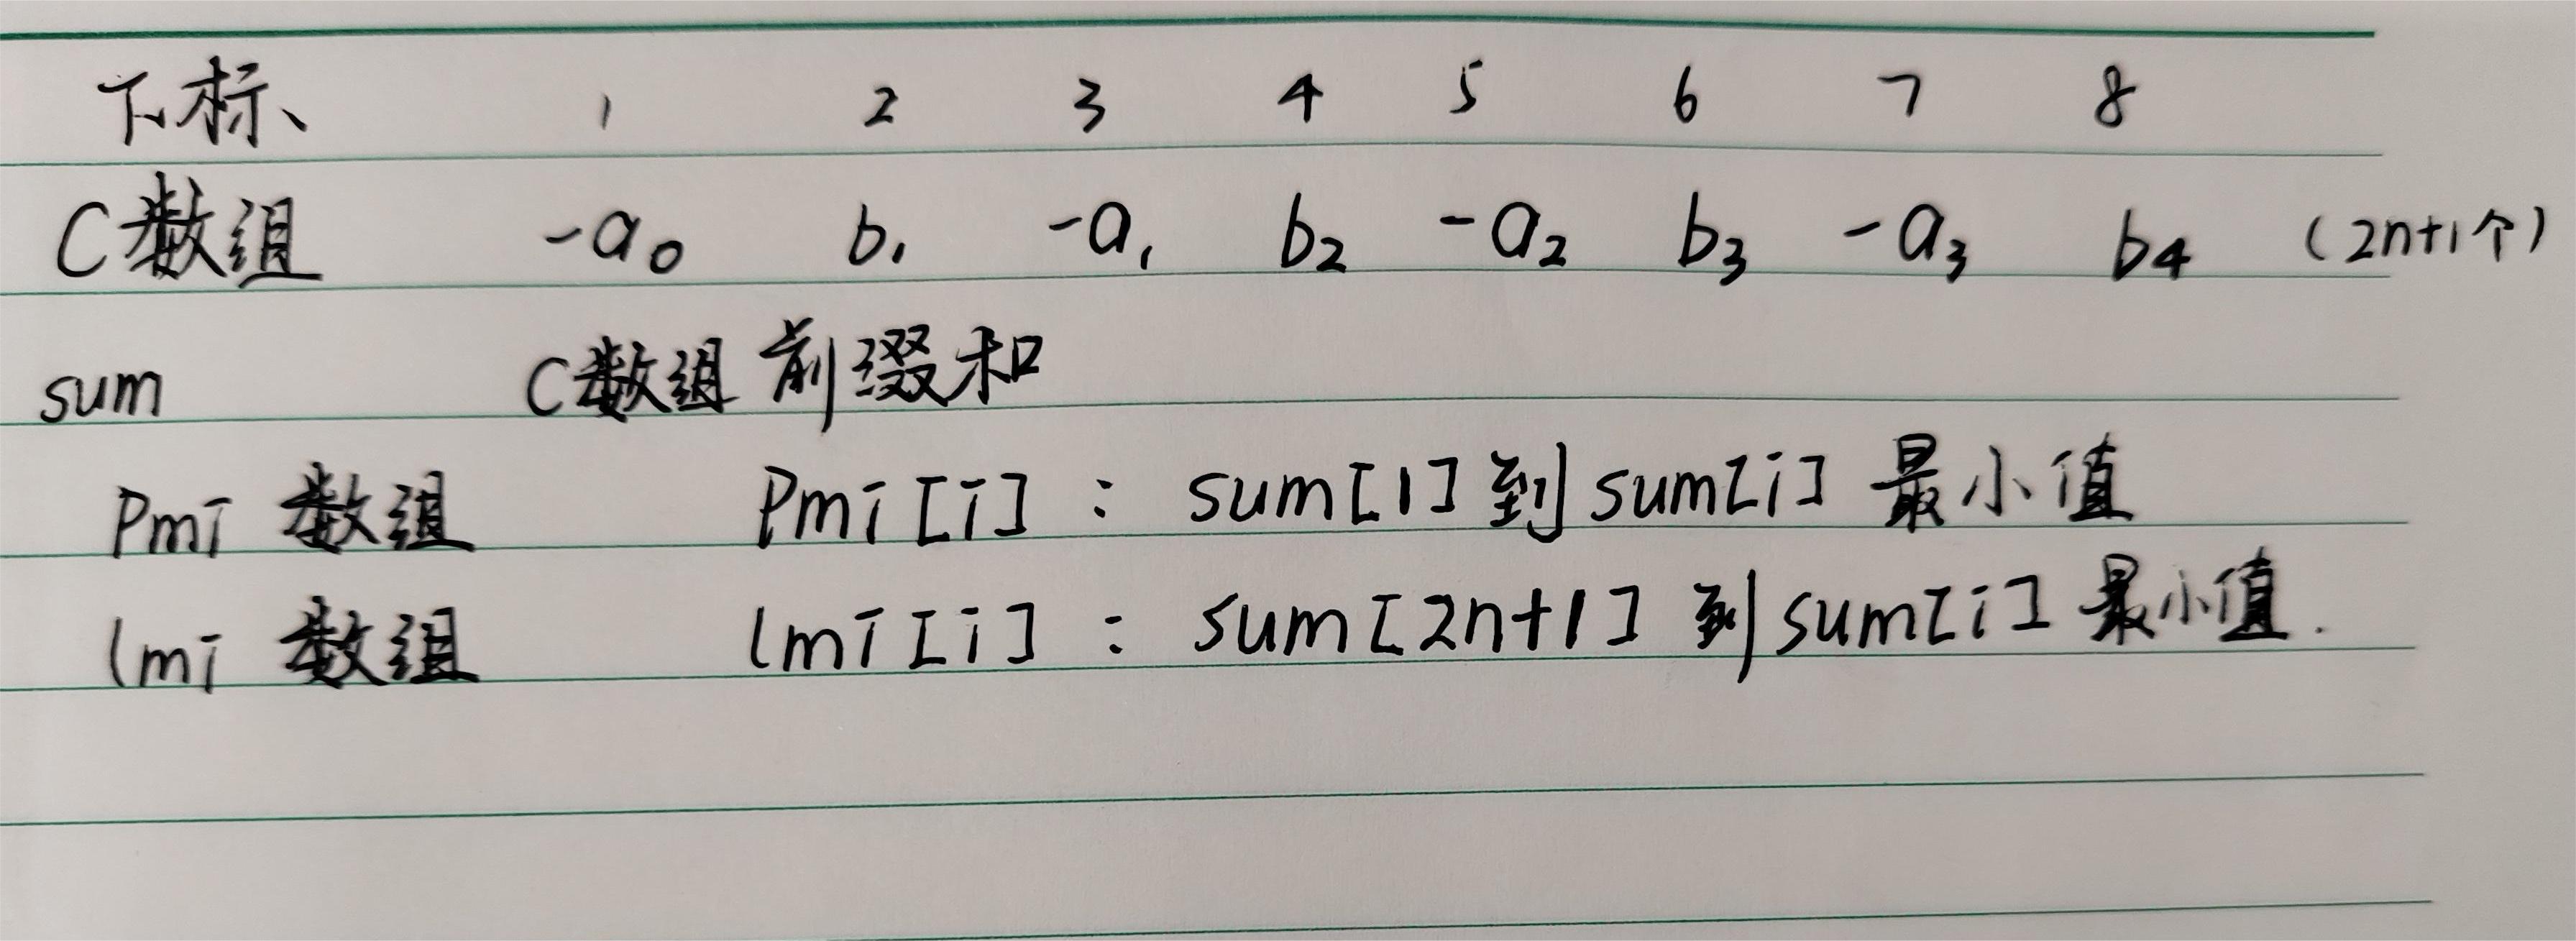 下标 1 2 3 4 5 6 7 8
C数组 -a₀ b₁ -a₁ b₂ -a₂ b₃ -a₃ b₄ (2n+1个)
sum C数组前缀和
Pmi 数组 Pmi[i] : sum[1]到sum[i] 最小值
lmi 数组 lmi[i] : sum[2n+1] 到sum[i] 最小值.